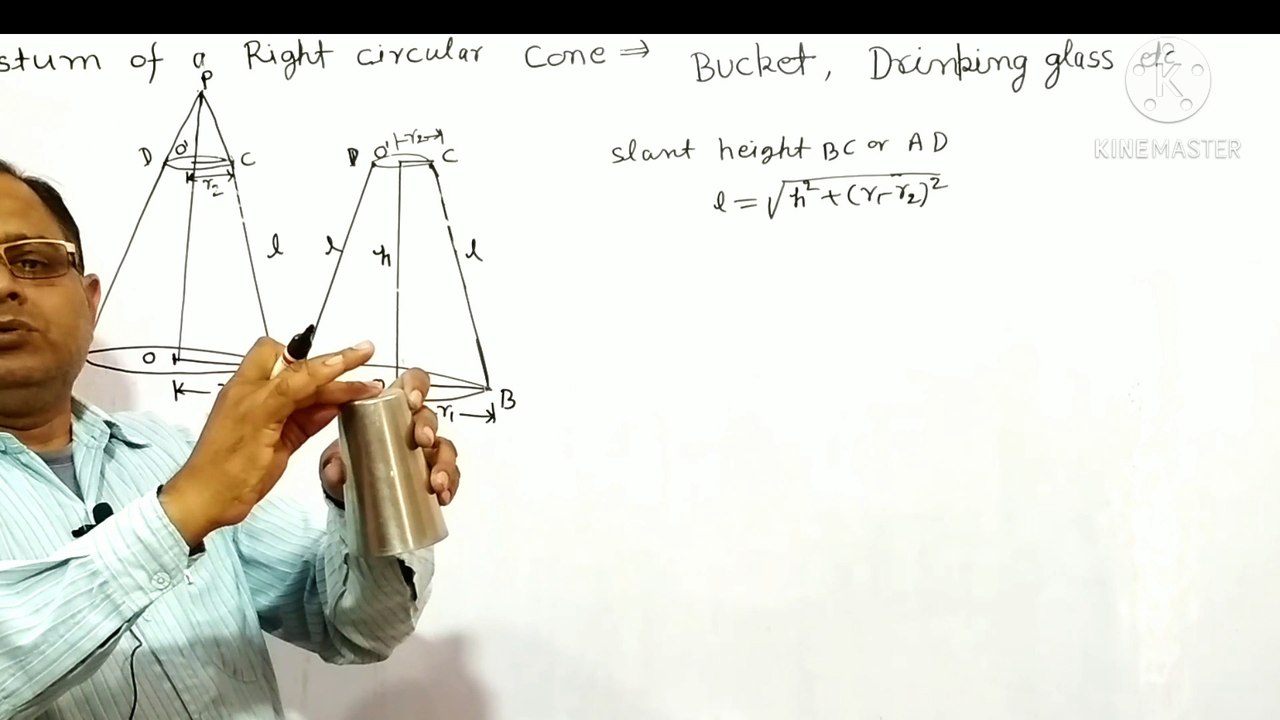 stum of a Right circular Cone ⇒ Bucket, Drinking glass etc
P
D O' C
r₂
l
O
D O' r₂ C
l h l
r₁ B
slant height BC or AD
l = √h² + (r₁ - r₂)²
K
KINEMASTER